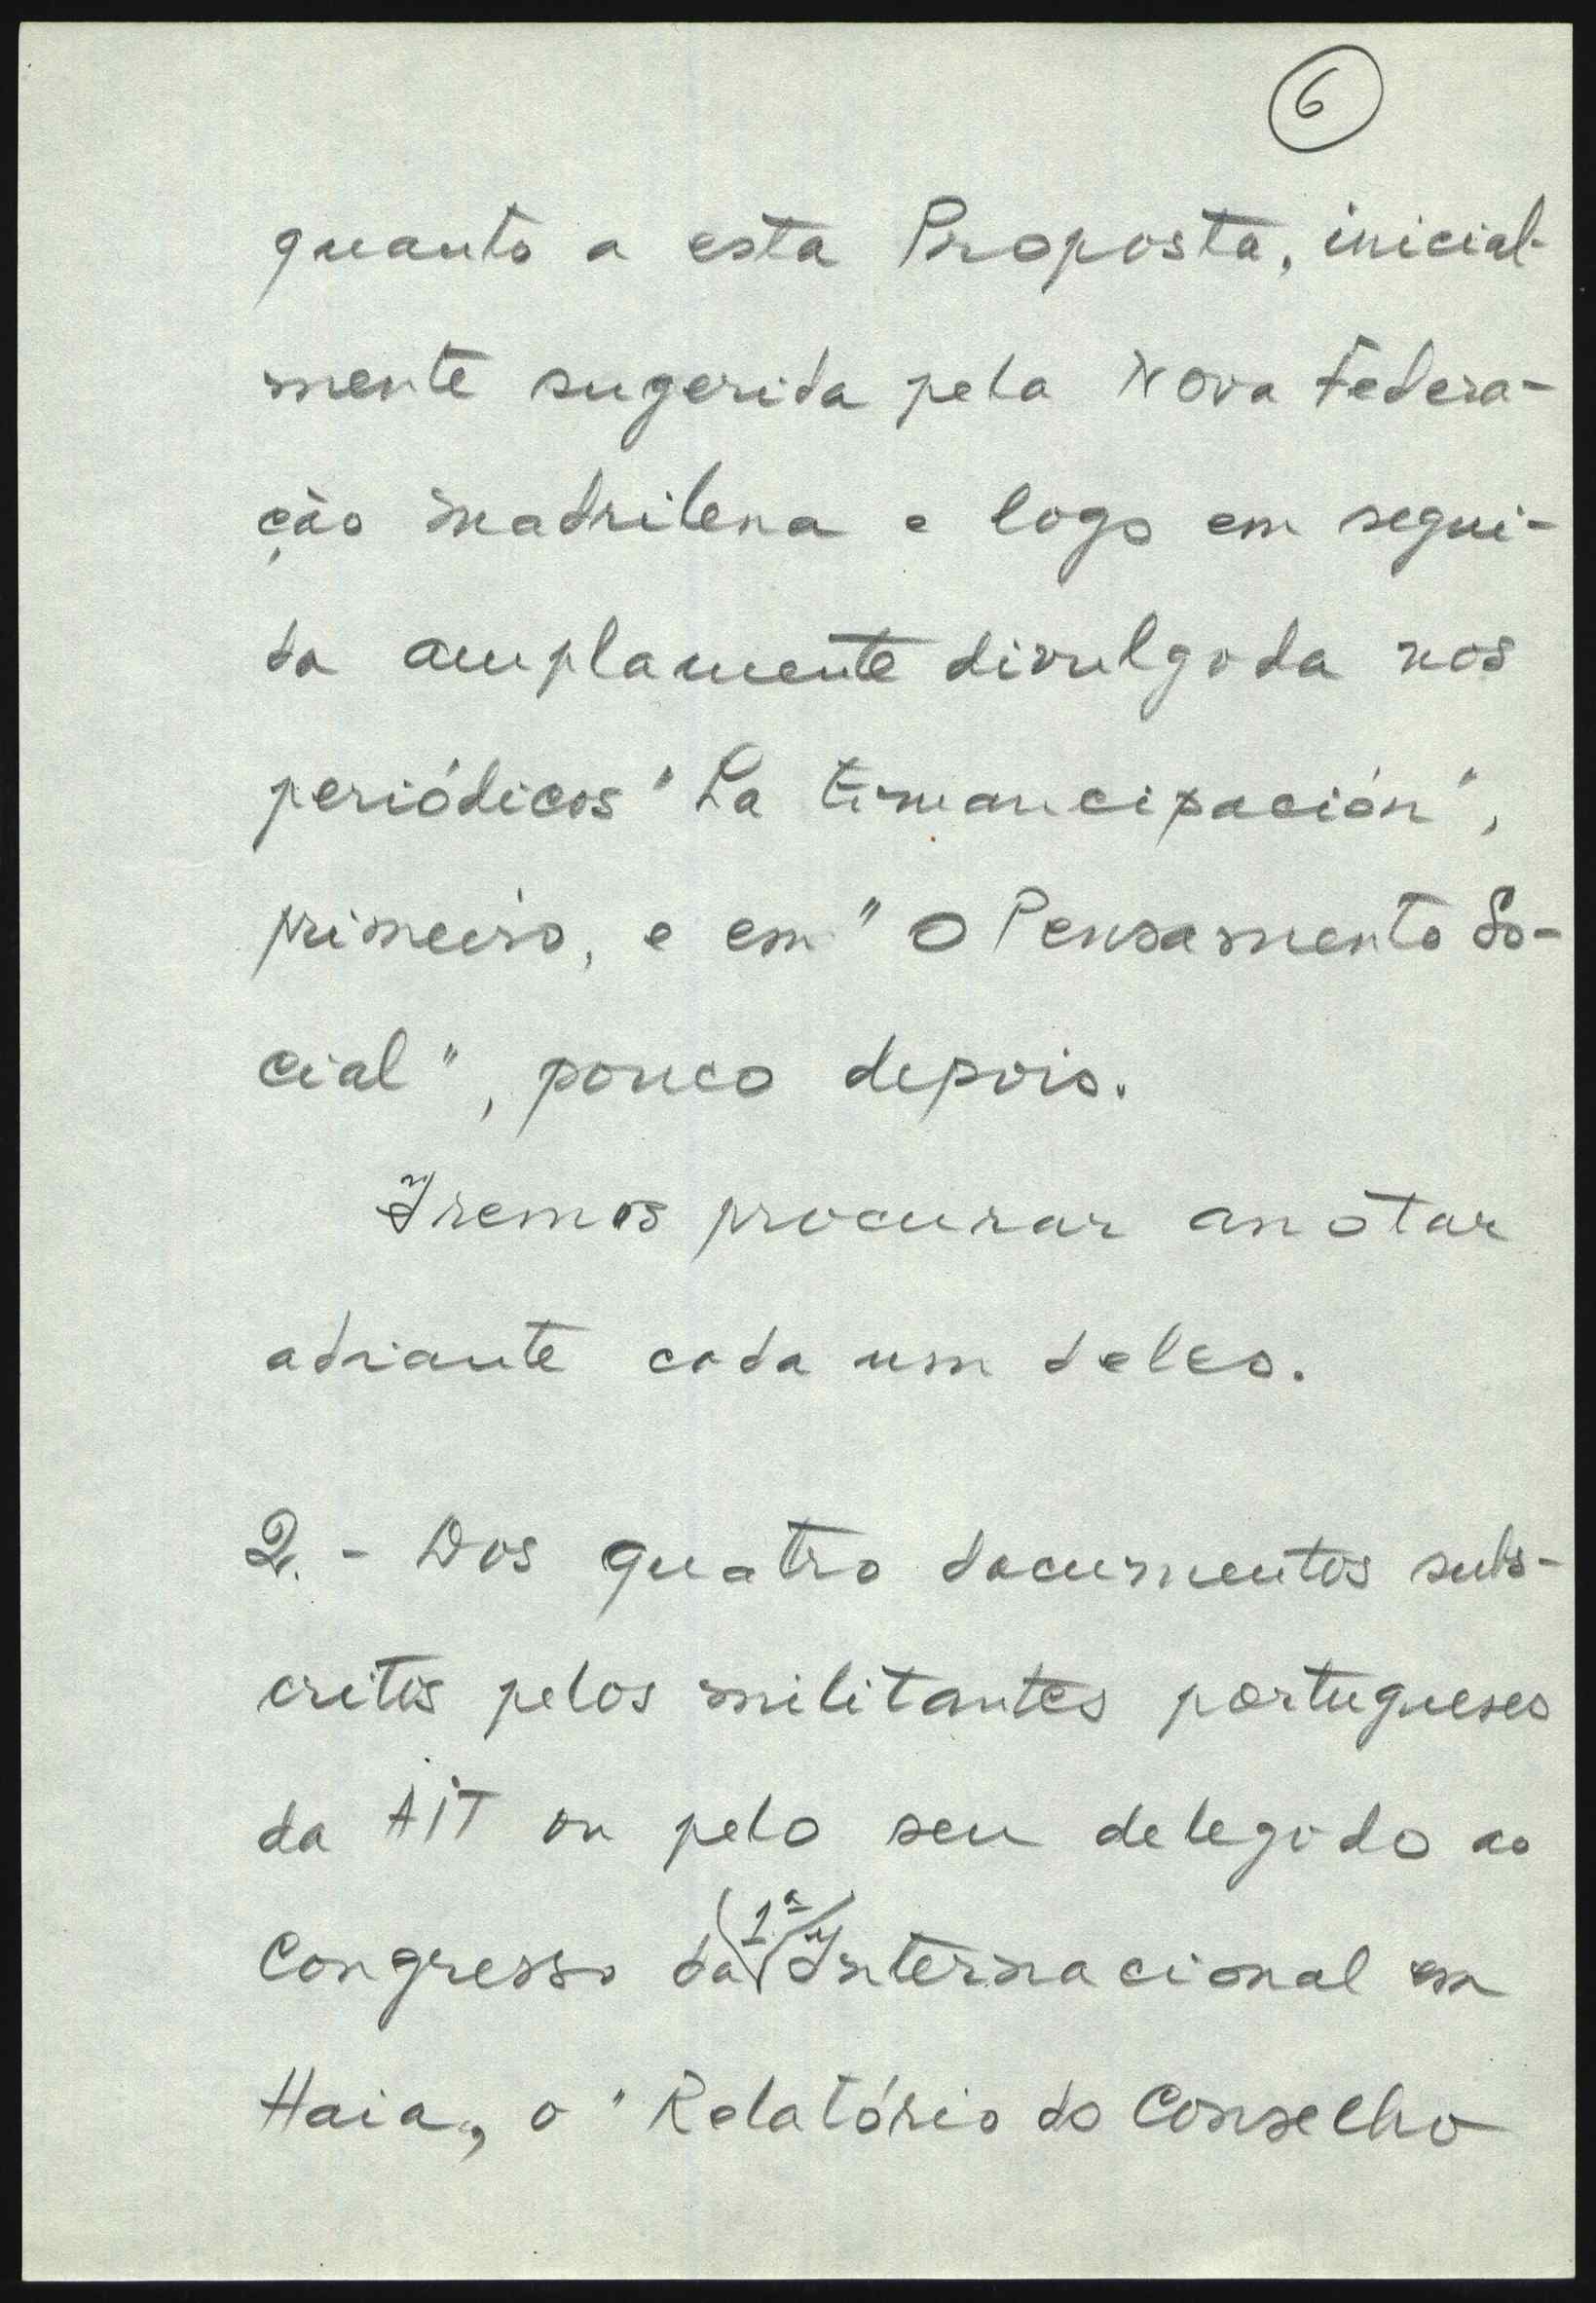 6
quanto a esta Proposta, inicial-
mente sugerida pela Nova Federa-
ção Madrilena e logo em segui-
da amplamente divulgada nos
periódicos "La Emancipación",
primeiro, e em "O Pensamento So-
cial", pouco depois.
Iremos procurar anotar
adiante cada um deles.
2. - Dos quatro documentos subs-
critos pelos militantes portugueses
da AIT ou pelo seu delegado ao
Congresso da 1ª Internacional em
Haia, o "Relatório do Conselho